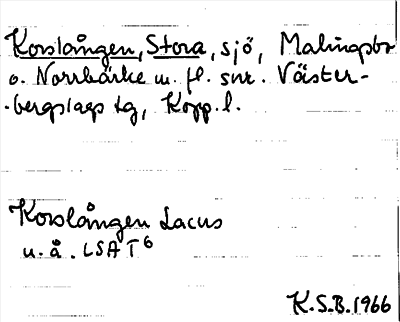 Korslången, Stora, sjö, Malingsbo
o. Norrbärke m. fl. snr. Väster-
-bergslags tg, Kopp. l.
Korslången Lacus
u. å. LSA T6
K.S.B. 1966